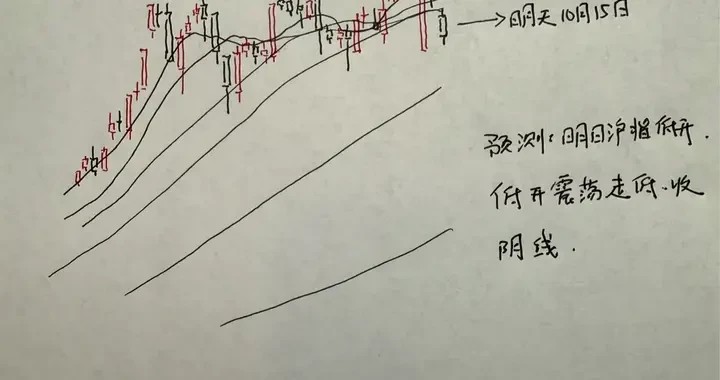 →明天10月15日
预测：明日沪指低开.
低开震荡走低.收
阴线.